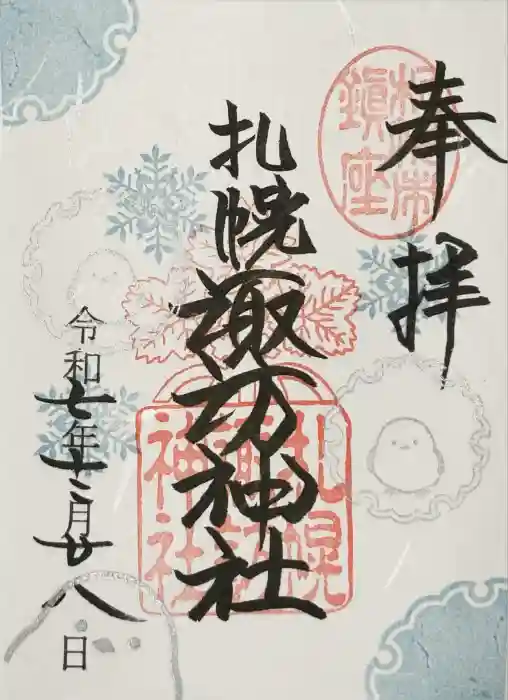 奉拝
札幌諏訪神社
令和七年十二月廿八日
札幌
諏訪
神社
鎮座